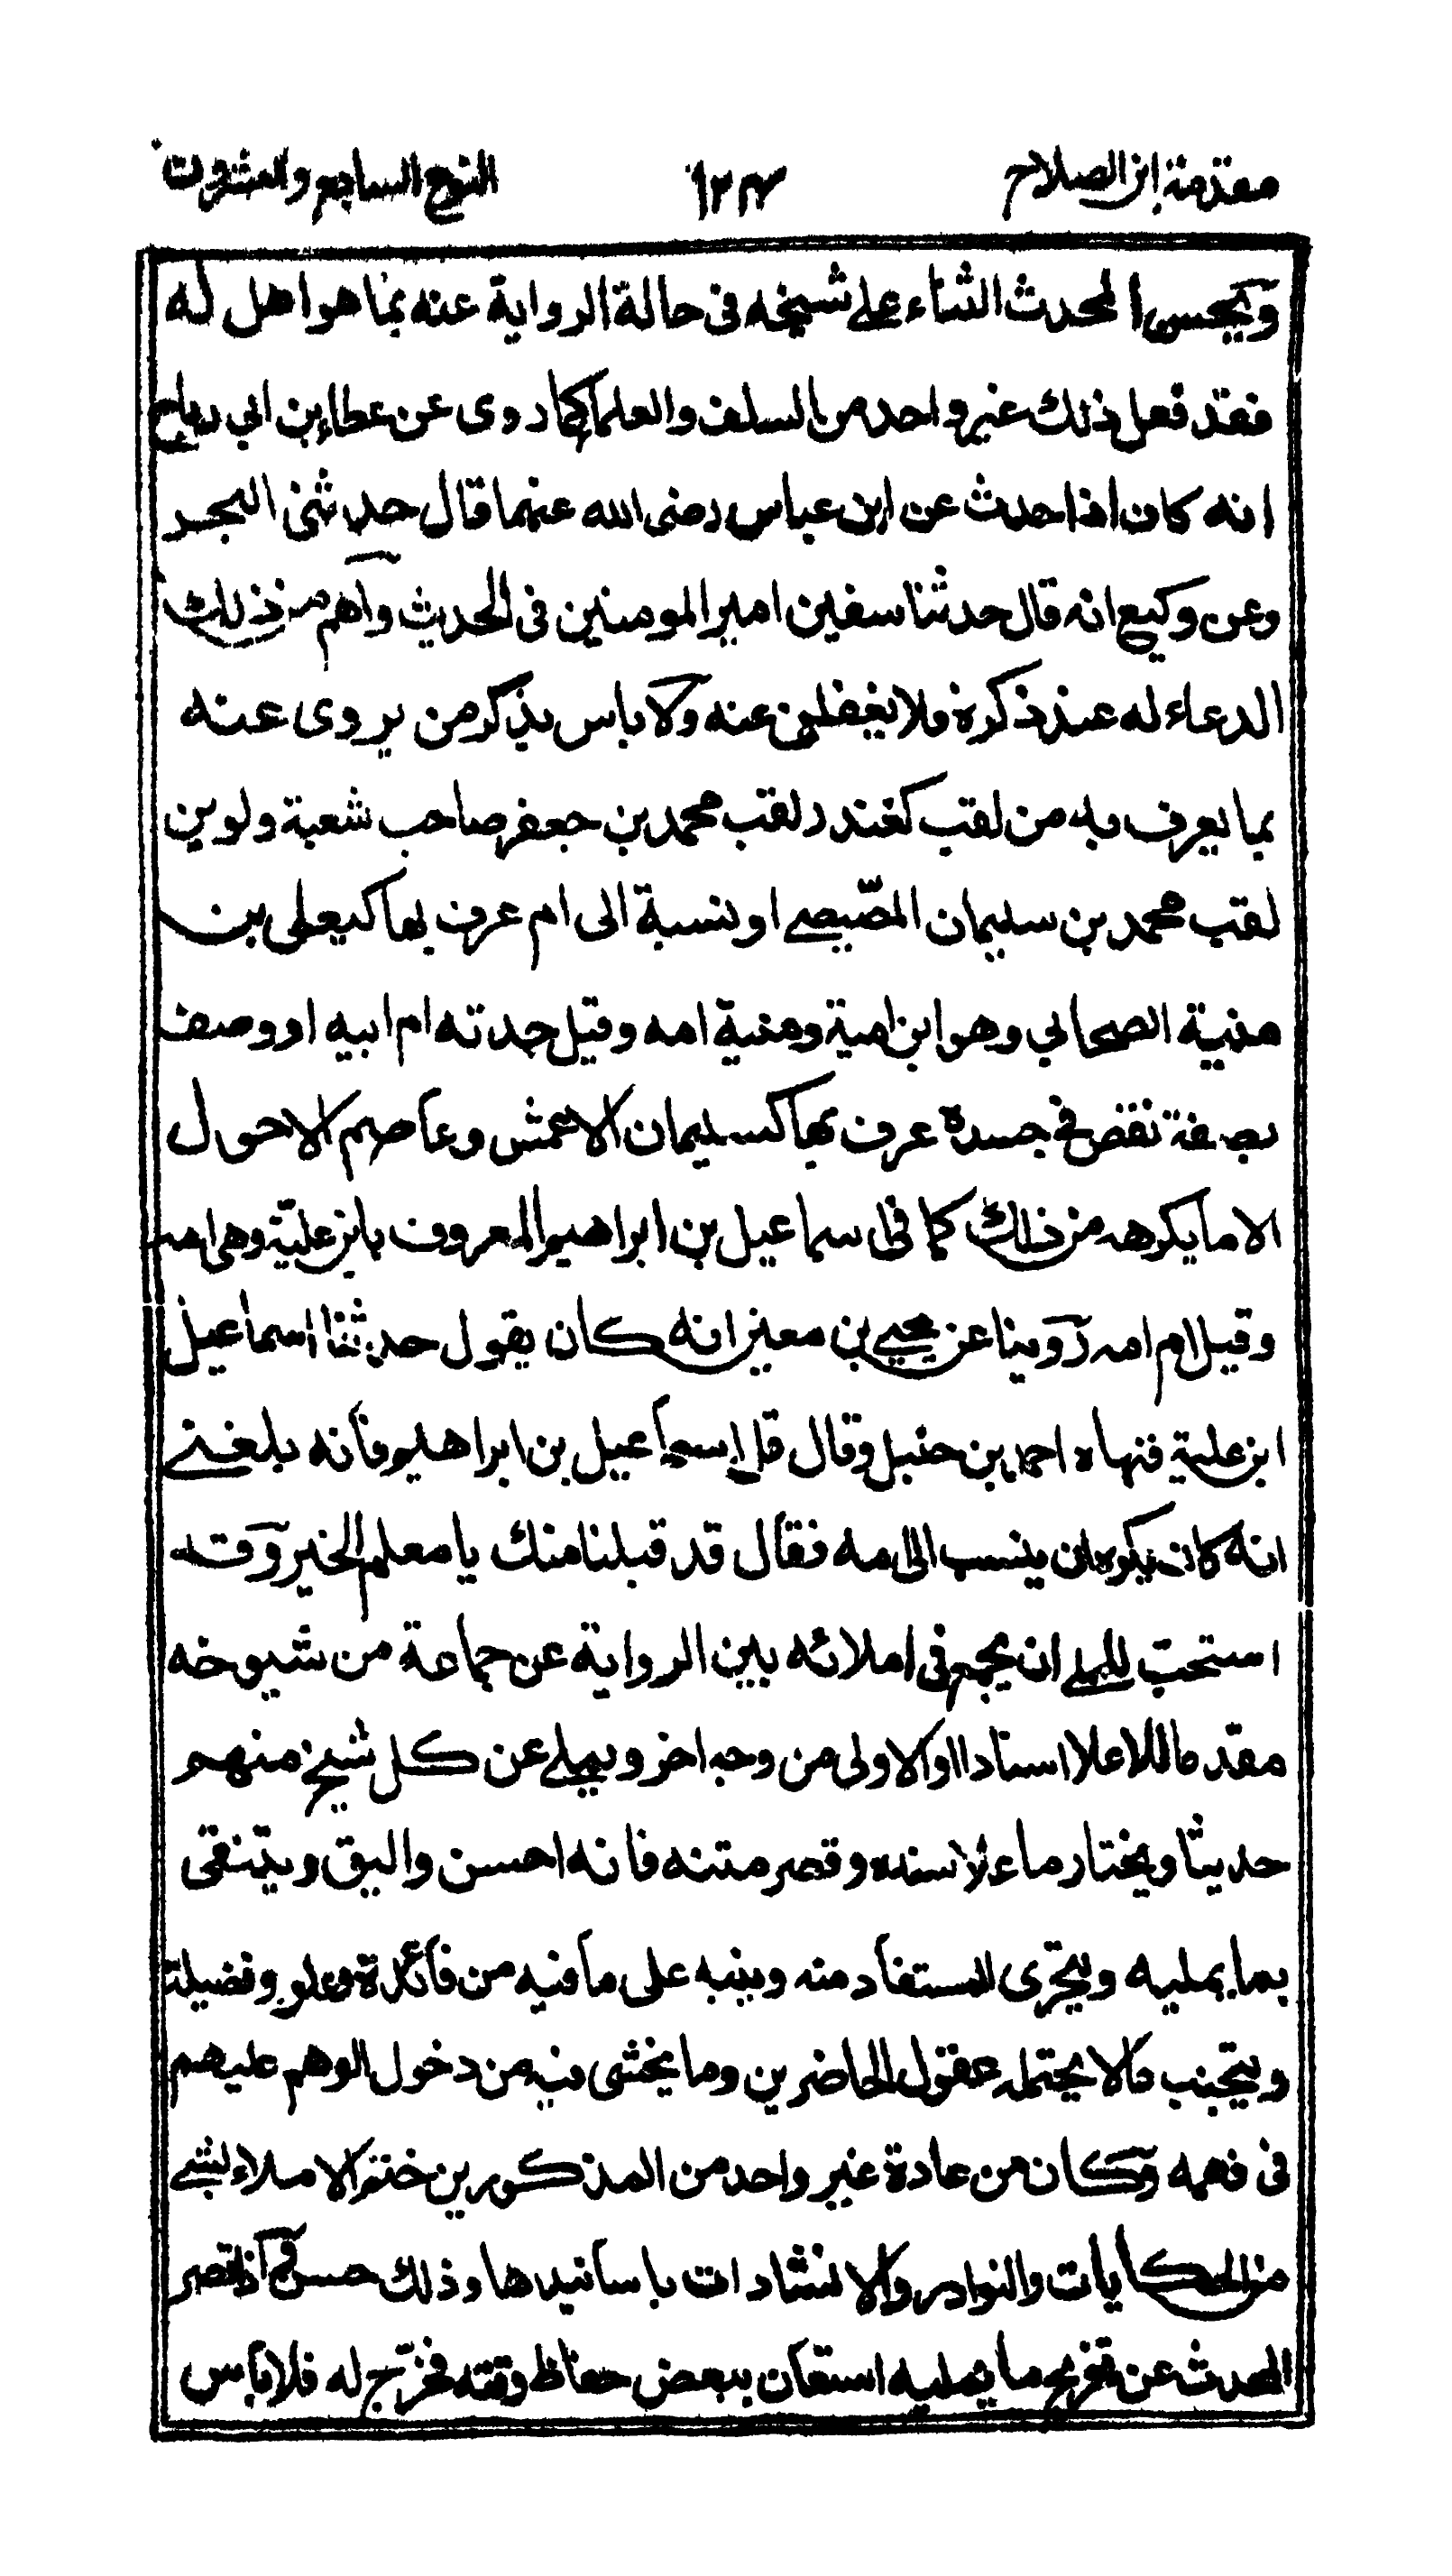 مقدمة ابن الصلاح ١٢٤ النوع السابع والعشرون
ويحسن المحدث الثناء على شيخه فى حالة الرواية عنه بما هو اهل له
فقد فعل ذلك غير واحد من السلف والعلما كما روى عن عطاء بن ابي رباح
انه كان اذا حدث عن ابن عباس رضى الله عنهما قال حدثنى البحر
وعن وكيع انه قال حدثنا سفين امير المومنين فى الحديث وآهم من ذلك
الدعاء له عند ذكره فلا يغفلن عنه ولا باس بذكر من يروى عنه
بما يعرف به من لقب كغندر لقب محمد بن جعفر صاحب شعبة ولوين
لقب محمد بن سليمان المصّيصے او نسبة الى ام عرف بها كيعلى بن
منية الصحابي وهو ابن امية ومنية امه وقيل جدته ام ابيه او وصف
بصفة نقص فى جسده عرف بها كسليمان الاعمش وعاصم الاحول
الا ما يكرهه من ذلك كما فى اسماعيل بن ابراهيم المعروف بابن عليّة وهى امه
وقيل ام امه روينا عن يحيے بن معين انه كان يقول حدثنا اسماعيل
ابن علية فنهاه احمد بن حنبل وقال قل اسماعيل بن ابراهيم فانه بلغنے
انه كان يكره ان ينسب الى امه فقال قد قبلنا منك يا معلم الخير وقد
استحبّ للمملے ان يجمع فى املائه بين الرواية عن جماعة من شيوخه
مقدما للاعلا اسنادا او الاولى من وجه اخر ويملے عن كل شيخ منهم
حديثا ويختار ما علا سنده وقصر متنه فانه احسن واليق وينتقى
بما يمليه ويتحرى المستفاد منه وينبه على ما فيه من فائدة وعلو وفضيلة
ويتجنب ما لا يحتمله عقول الحاضرين وما يخشى فيه من دخول الوهم عليهم
فى فهمه وكان من عادة غير واحد من المذكورين ختم الاملاء بشے
من الحكايات والنوادر والانشادات باسانيدها وذلك حسن واذا قصر
المحدث عن تخريج ما يمليه استعان ببعض حفاظ وقته فخرّج له فلا باس